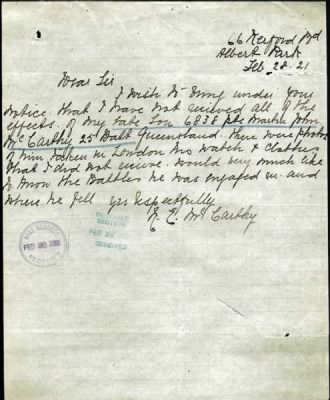 66 Kerferd Rd
Albert Park
Feb 28. 21
Dear Sir
I wish to bring under your
notice that I have not recieved all of the
effects of my late Son 6838 pte Martin John
McCarthy 25 Batt Queensland. there were photos
of him taken in London His Watch & Clothes
that I did not recieve. would very much like
to Know the Battles he was engaged in and
where he fell yrs respectfully
McCarthy
RECEIVED